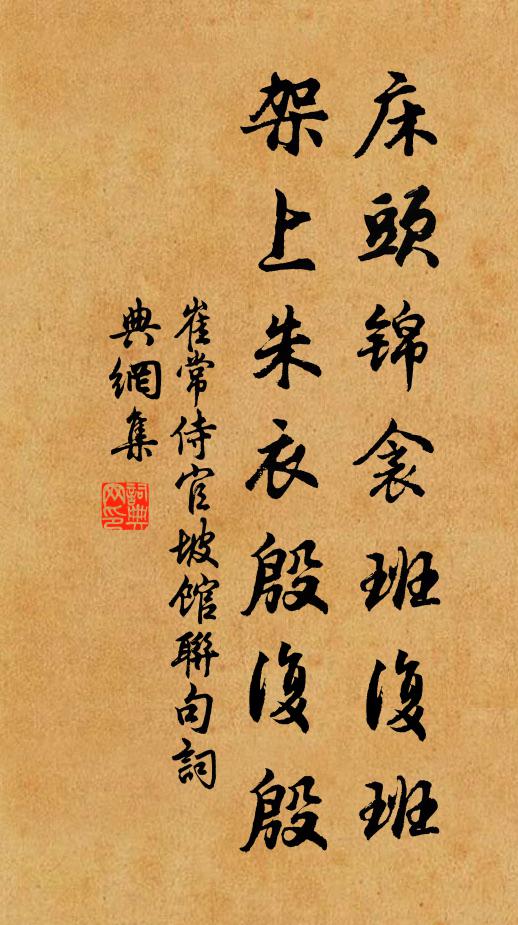 床頭錦衾班復班
架上朱衣殷復殷
崔常侍官坡館聯句詞
典網集
詞典網印